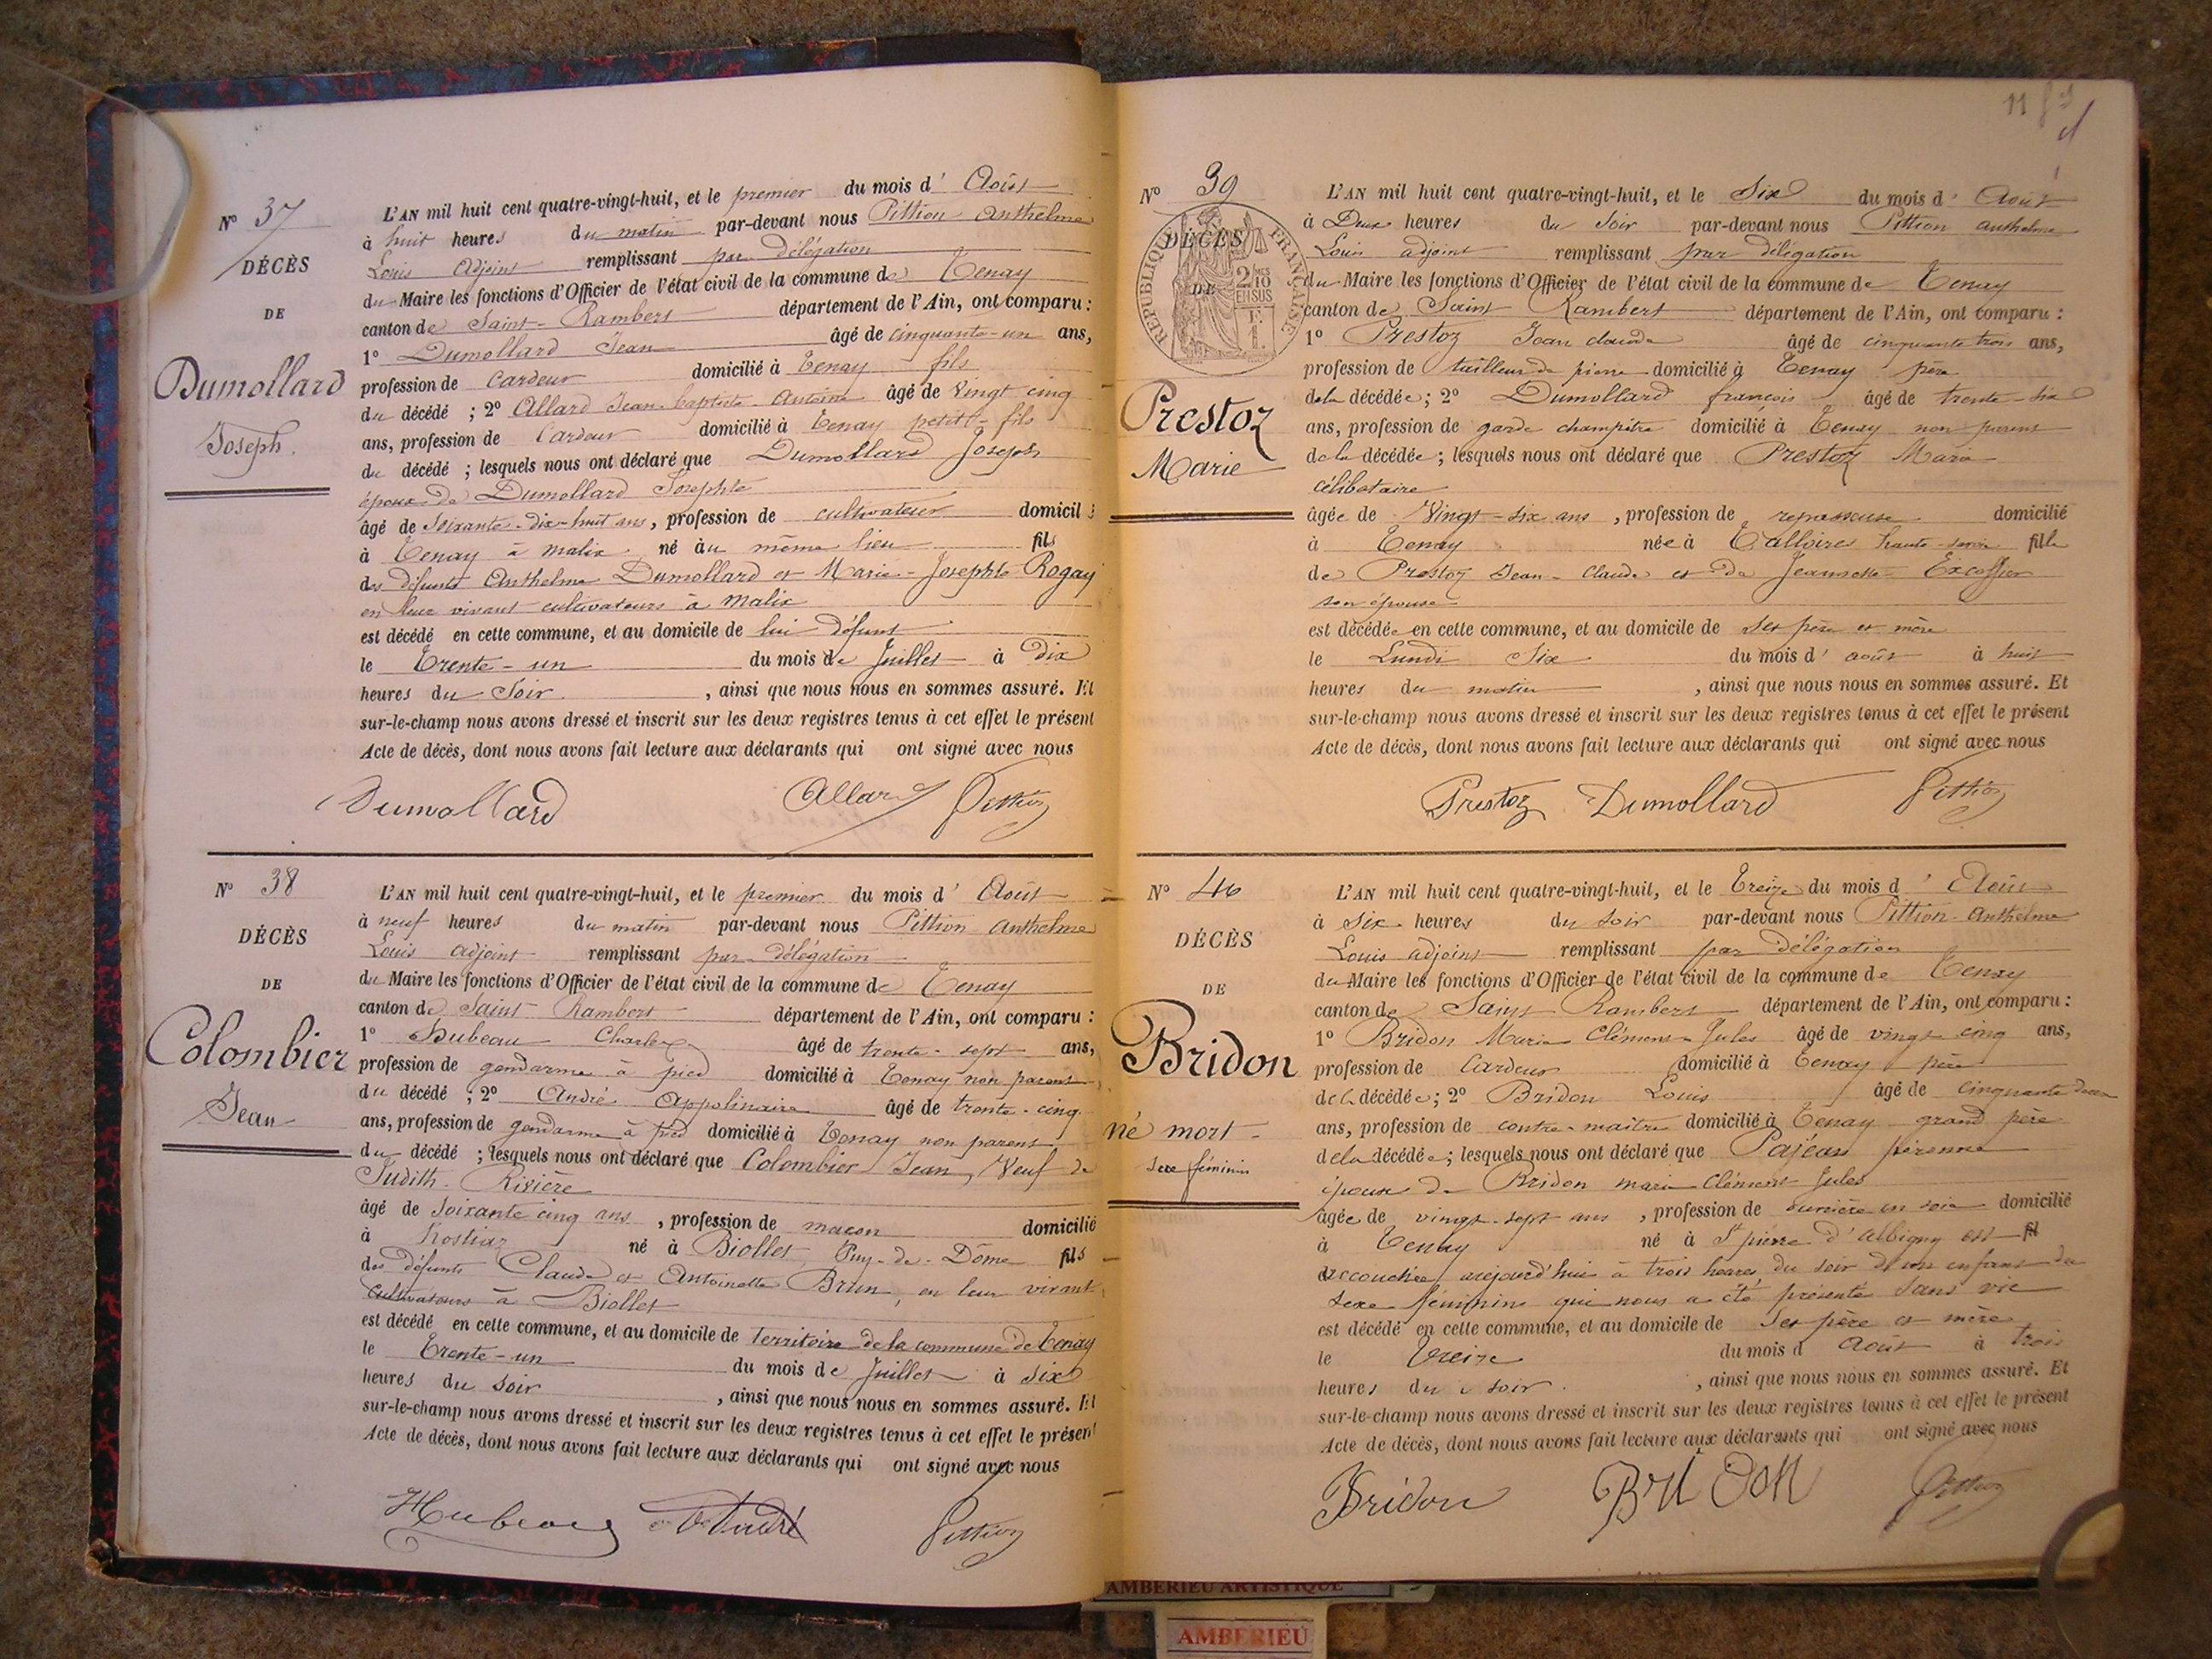 N° 37
DÉCÈS
DE
Dumollard
Joseph.
L'AN mil huit cent quatre-vingt-huit, et le premier du mois d' Août
à huit heures du matin par-devant nous Pittion Anthelme
Louis Adjoint remplissant par délégation
du Maire les fonctions d'Officier de l'état civil de la commune de Tenay
canton de Saint-Rambert département de l'Ain, ont comparu :
1° Dumollard Jean âgé de cinquante-un ans,
profession de Cardeur domicilié à Tenay fils
du décédé ; 2° Allard Jean-baptiste-Antoine âgé de Vingt cinq
ans, profession de Cardeur domicilié à Tenay petit-fils
du décédé ; lesquels nous ont déclaré que Dumollard Joseph
époux de Dumollard Josephte
âgé de Soixante-dix-huit ans, profession de cultivateur domicilié
à Tenay à malix né au même lieu fils
des défunts Anthelme Dumollard et Marie-Josephte Rogay
en leur vivant cultivateurs à Malix
est décédé en cette commune, et au domicile de lui défunt
le Trente-un du mois de Juillet à Dix
heures du Soir. , ainsi que nous nous en sommes assuré. Et
sur-le-champ nous avons dressé et inscrit sur les deux registres tenus à cet effet le présent
Acte de décès, dont nous avons fait lecture aux déclarants qui ont signé avec nous
Dumollard Allard Pittion
N° 38
DÉCÈS
DE
Colombier
Jean
L'AN mil huit cent quatre-vingt-huit, et le premier du mois d' Août
à neuf heures du matin par-devant nous Pittion Anthelme
Louis adjoint remplissant par délégation
du Maire les fonctions d'Officier de l'état civil de la commune de Tenay
canton de Saint-Rambert département de l'Ain, ont comparu :
1° Hubeau Charles âgé de trente-sept ans,
profession de gendarme à pied domicilié à Tenay non parent
du décédé ; 2° André Appolinaire âgé de trente-cinq
ans, profession de gendarme à pied domicilié à Tenay non parent
du décédé ; lesquels nous ont déclaré que Colombier Jean, Veuf de
Judith Rivière
âgé de Soixante cinq ans , profession de maçon domicilié
à Rostiaz né à Biollet Puy-de-Dôme fils
des défunts Claude et Antoinette Brun, en leur vivant
cultivateurs à Biollet
est décédé en cette commune, et au domicile de Territoire de la commune de Tenay
le Trente-un du mois de Juillet à Six
heures du Soir , ainsi que nous nous en sommes assuré. Et
sur-le-champ nous avons dressé et inscrit sur les deux registres tenus à cet effet le présent
Acte de décès, dont nous avons fait lecture aux déclarants qui ont signé avec nous
Hubeau André Pittion
11
N° 39
DÉCÈS
DE
RÉPUBLIQUE FRANÇAISE
2/10 EN SUS
Prestoz
Marie
L'AN mil huit cent quatre-vingt-huit, et le Six du mois d' Août
à Deux heures du Soir par-devant nous Pittion anthelme
Louis adjoint remplissant par délégation
du Maire les fonctions d'Officier de l'état civil de la commune de Tenay
canton de Saint Rambert département de l'Ain, ont comparu :
1° Prestoz Jean claude âgé de cinquante trois ans,
profession de tailleur de pierre domicilié à Tenay père
de la décédée ; 2° Dumollard françois âgé de trente-six
ans, profession de garde champêtre domicilié à Tenay non parent
de la décédée ; lesquels nous ont déclaré que Prestoz Marie
célibataire
âgée de Vingt-six ans , profession de repasseuse domicilié
à Tenay née à Talloires haute-savoie fille
de Prestoz Jean-Claude et de Jeannette Excoffier
son épouse
est décédée en cette commune, et au domicile de ses père et mère
le Lundi Six du mois d' août à huit
heures du matin , ainsi que nous nous en sommes assuré. Et
sur-le-champ nous avons dressé et inscrit sur les deux registres tenus à cet effet le présent
Acte de décès, dont nous avons fait lecture aux déclarants qui ont signé avec nous
Prestoz Dumollard Pittion
N° 40
DÉCÈS
DE
Bridon
né mort
sexe féminin
L'AN mil huit cent quatre-vingt-huit, et le Treize du mois d' Août
à Six heures du soir par-devant nous Pittion Anthelme
Louis adjoint remplissant par délégation
du Maire les fonctions d'Officier de l'état civil de la commune de Tenay
canton de Saint Rambert département de l'Ain, ont comparu :
1° Bridon Marie Clément Jules âgé de vingt cinq ans,
profession de Cardeur domicilié à Tenay père
de la décédée ; 2° Bridon Louis âgé de cinquante deux
ans, profession de contre-maître domicilié à Tenay grand père
de la décédée ; lesquels nous ont déclaré que Pajean
épouse de Bridon marie Clément Jules
âgée de vingt-sept ans , profession de ouvrière en soie domicilié
à Tenay né à St pierre d'Albigny est
accouchée aujourd'hui à trois heures du soir d'un enfant du
sexe féminin qui nous a été présenté sans vie
est décédé en cette commune, et au domicile de ses père et mère
le Treize du mois d Août à trois
heures du soir. , ainsi que nous nous en sommes assuré. Et
sur-le-champ nous avons dressé et inscrit sur les deux registres tenus à cet effet le présent
Acte de décès, dont nous avons fait lecture aux déclarants qui ont signé avec nous
Bridon Bridon Pittion
AMBERIEU ARTISTIQUE
AMBERIEU